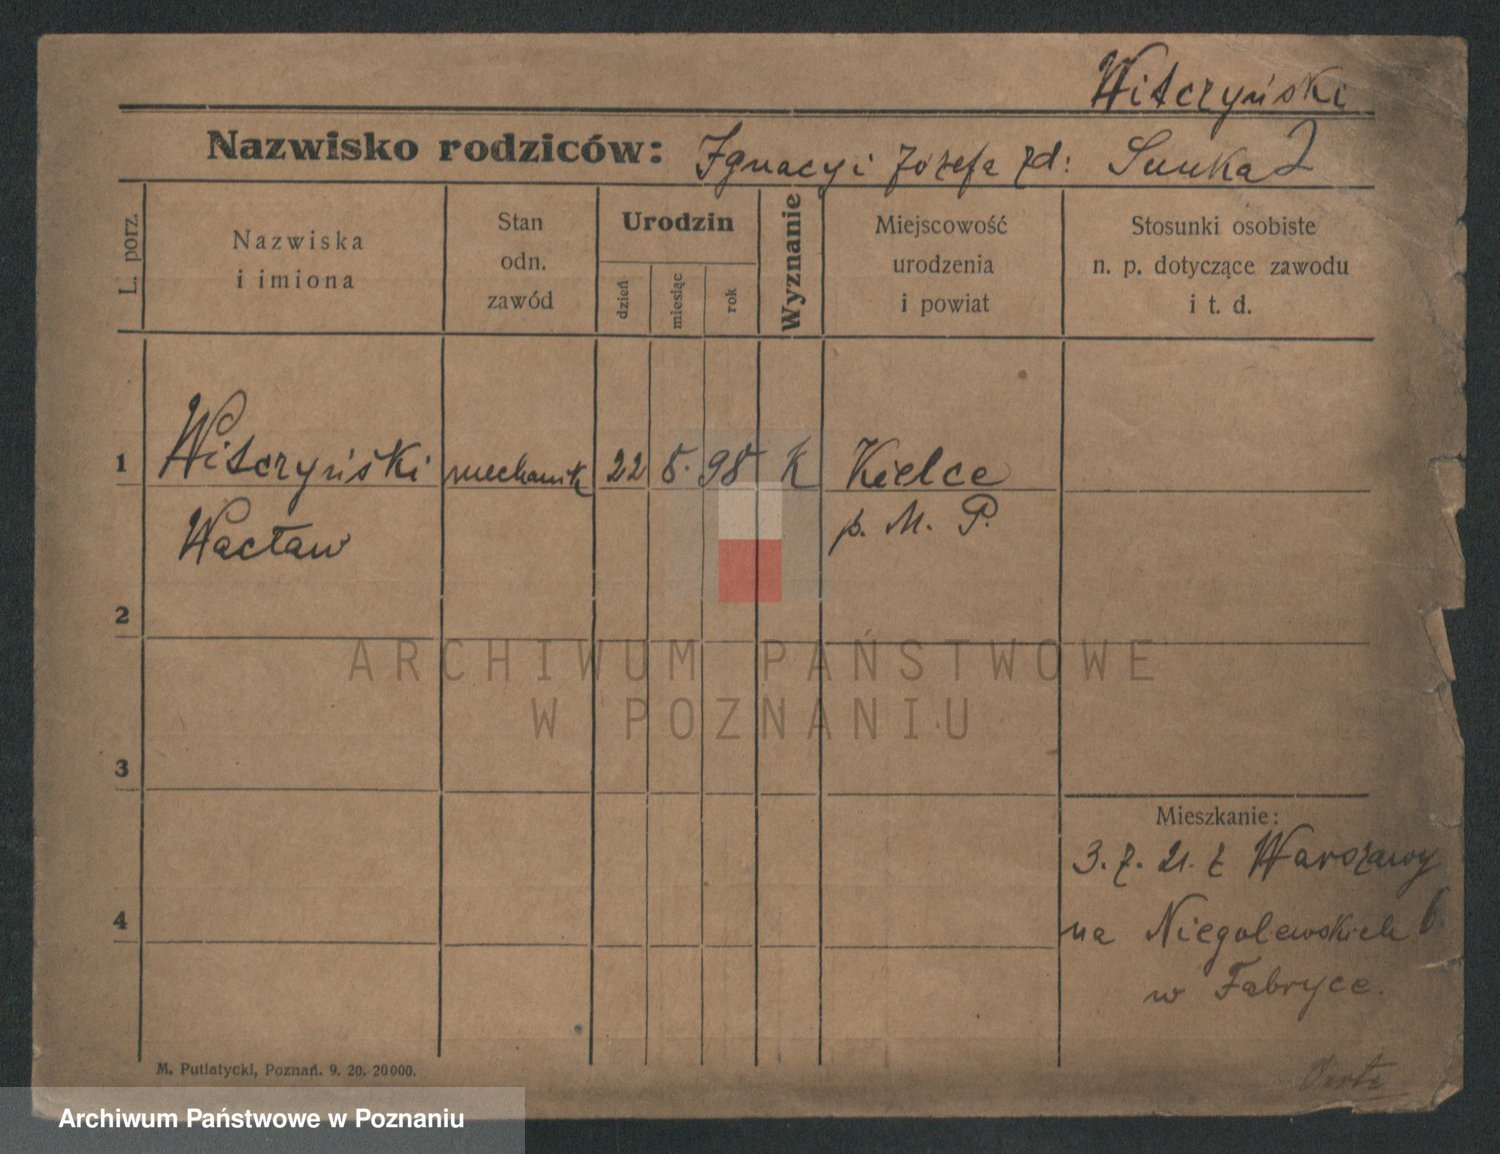 Witczyński
Nazwisko rodziców: Ignacy i Józefa zd:
L. porz.
Nazwiska
i imiona
Stan
odn.
zawód
Urodzin
dzień
miesiąc
rok
Wyznanie
Miejscowość
urodzenia
i powiat
Stosunki osobiste
n. p. dotyczące zawodu
i t. d.
1 Witczyński mechanik 22 8. 98 K Kielce
Wacław p. M. P.
2
ARCHIWUM PAŃSTWOWE
W POZNANIU
3
Mieszkanie:
3. 7. 21. z Warszawy
4
na Niegolewskich 6
w Fabryce.
M. Putiatycki, Poznań. 9. 20. 20000.
Archiwum Państwowe w Poznaniu